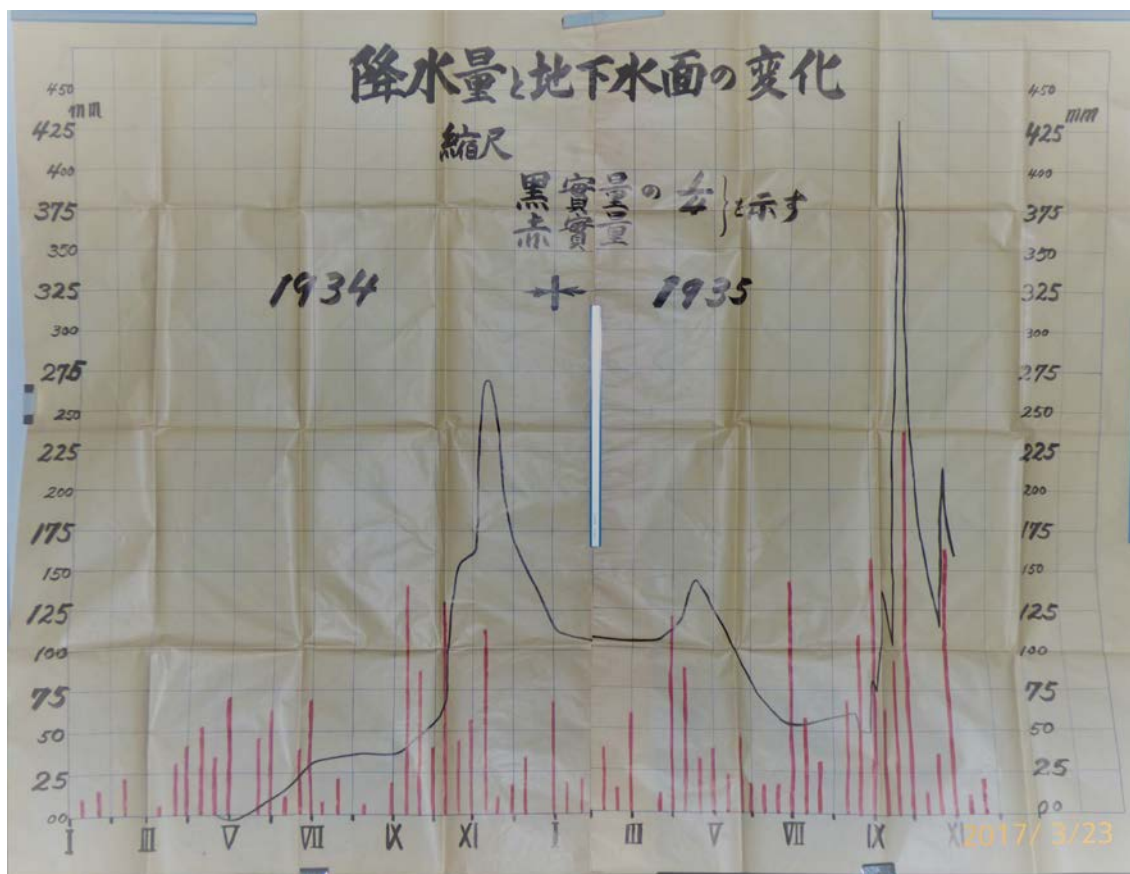 降水量と地下水面の変化
縮尺
黒 實量の 1/4
赤 實量
を示す
1934
1935
450
mm
425
400
375
350
325
300
275
250
225
200
175
150
125
100
75
50
25
00
450
mm
425
400
375
350
325
300
275
250
225
200
175
150
125
100
75
50
25
00
I III V VII IX XI I III V VII IX XI
2017/ 3/23